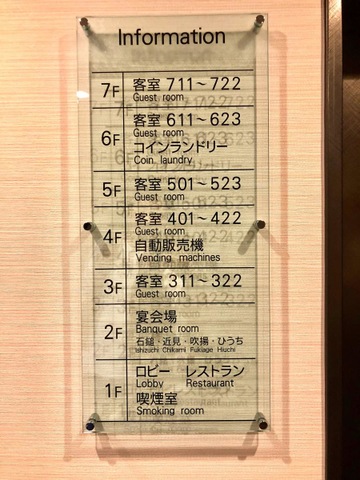 Information
7F 客室 711～722
Guest room
6F 客室 611～623
Guest room
コインランドリー
Coin laundry
5F 客室 501～523
Guest room
4F 客室 401～422
Guest room
自動販売機
Vending machines
3F 客室 311～322
Guest room
2F 宴会場
Banquet room
石鎚・近見・吹揚・ひうち
Ishizuchi Chikami Fukiage Hiuchi
1F ロビー レストラン
Lobby Restaurant
喫煙室
Smoking room